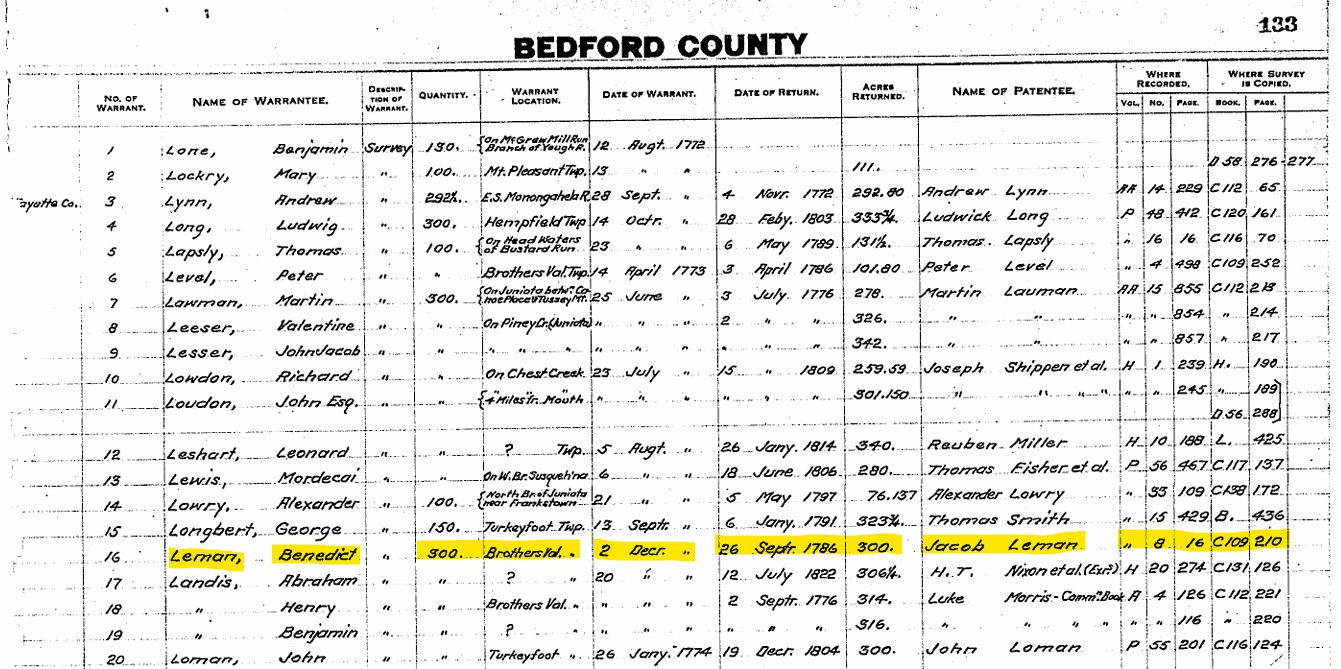 133
BEDFORD COUNTY
NO. OF WARRANT. NAME OF WARRANTEE. DESCRIPTION OF WARRANT. QUANTITY. WARRANT LOCATION. DATE OF WARRANT. DATE OF RETURN. ACRES RETURNED. NAME OF PATENTEE. WHERE RECORDED. WHERE SURVEY IS COPIED.
VOL. NO. PAGE. BOOK. PAGE.
1 Lone, Benjamin Survey 150. {On McGrew Mill Run Branch of Yough R. 12 Augt. 1772
D 58 276-277
2 Lockry, Mary " 100. Mt. Pleasant Twp. 13 " " 111.
ayette Co. 3 Lynn, Andrew " 292¼ E.S. Monongahela R. 28 Sept. " 4 Novr. 1772 292.80 Andrew Lynn AA 14 229 C112 65
4 Long, Ludwig " 300. Hempfield Twp 14 Octr. " 28 Feby. 1803 333¾ Ludwick Long P 48 412 C120 161
5 Lapsly, Thomas " 100. {On Head Waters of Bustard Run 23 " " 6 May 1789 131½ Thomas Lapsly " 16 16 C116 70
6 Level, Peter " " Brothers Val. Twp. 14 April 1773 3 April 1786 101.80 Peter Level " 4 498 C109 252
7 Lawman, Martin " 300. {On Juniata betwn. Canoe Place & Tussey Mt. 25 June " 3 July 1776 278. Martin Lauman AA 15 855 C112 213
8 Leeser, Valentine " " On Piney Cr. (Juniata) " " " 2 " " 326. " " " " 854 " 214
9 Lesser, John Jacob " " " " " " " " " " " " 342. " " " " 857 " 217
10 Lowdon, Richard " " On Chest Creek 23 July " 15 " 1809 259.59 Joseph Shippen et al. H 1 239 H. 190
11 Loudon, John Esq. " " {4 Miles fr. Mouth " " " " " " 301.150 " " " " " " 245 " 189}
D 56 288}
12 Leshart, Leonard " " ? Twp. 5 Augt. " 26 Jany. 1814 340. Reuben Miller H 10 188 L. 425
13 Lewis, Mordecai " " On W. Br. Susqueh'na 6 " " 18 June 1806 280. Thomas Fisher et al. P 56 467 C117 137
14 Lowry, Alexander " 100. {North Br. of Juniata near Frankstown 21 " " 5 May 1797 76.137 Alexander Lowry " 33 109 C138 172
15 Longbert, George " 150. Turkeyfoot Twp. 13 Septr. " 6 Jany. 1791 323¾ Thomas Smith " 15 429 B. 436
16 Leman, Benedict " 300. Brothers Val. " 2 Decr. " 26 Septr. 1786 300. Jacob Leman " 8 16 C109 210
17 Landis, Abraham " " ? " 20 " " 12 July 1822 306¼ H. T. Nixon et al. (Exr.) H 20 274 C131 126
18 " Henry " " Brothers Val. " " " " 2 Septr. 1776 314. Luke Morris - Commn. Book A 4 126 C112 221
19 " Benjamin " " ? " " " " " " " 316. " " " " " " 116 " 220
20 Loman, John " " Turkeyfoot " 26 Jany. 1774 19 Decr. 1804 300. John Loman P 55 201 C116 124